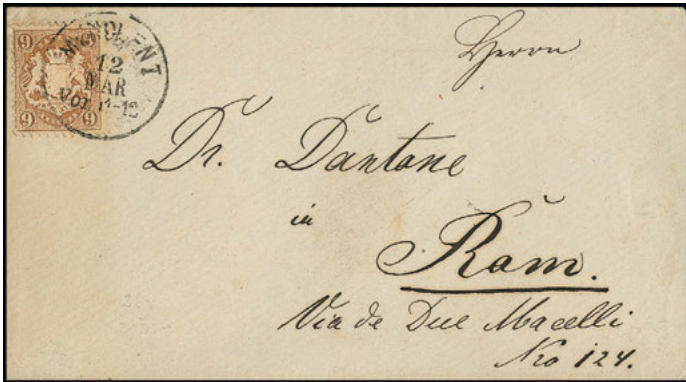 9 9
MÜNCHEN I
12
MAR
VOR. 11-12
9 9
Herrn
Dr. Dantone
in
Rom.
Via de Due Macelli
Nro 124.